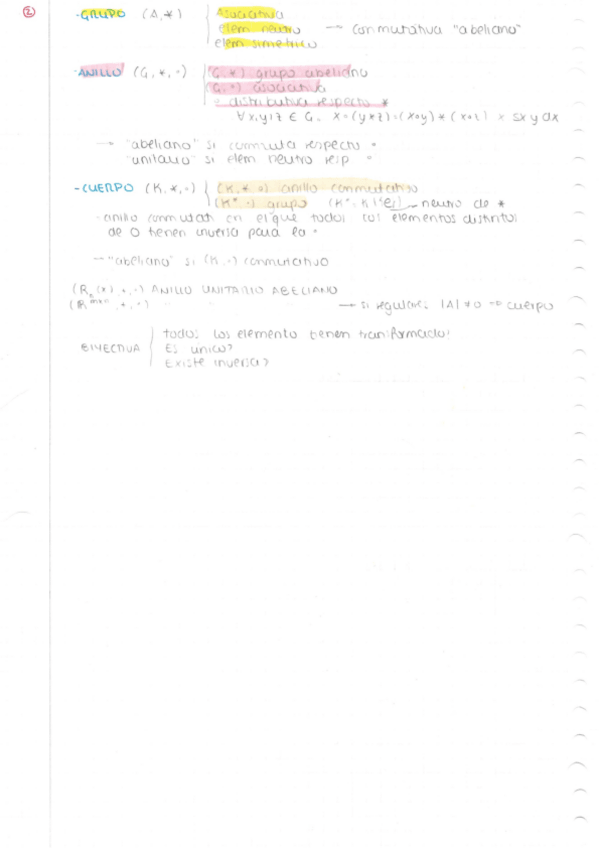 ②
-GRUPO (A,*) Asociativa
elem neutro → conmutativa "abeliano"
elem simetrico
-ANILLO (G,*,·) (G,*) grupo abeliano
(G,·) asociativa
· distributiva respecto *
∀x,y,z ∈ G
→ "abeliano" si conmuta respecto ·
"unitario" si elem neutro resp ·
-CUERPO (K,*,·) (K,*,·) anillo conmutativo
grupo neutro de *
·anillo conmutati en el que todos los elementos distintos
de 0 tienen inversa para la ·
→"abeliano" si (K,·) conmutativo
ANILLO UNITARIO ABELIANO
→ si regulares: |A|≠0 => cuerpo
BIYECTIVA todos los elemento tienen transformado?
Es unico?
Existe inversa?